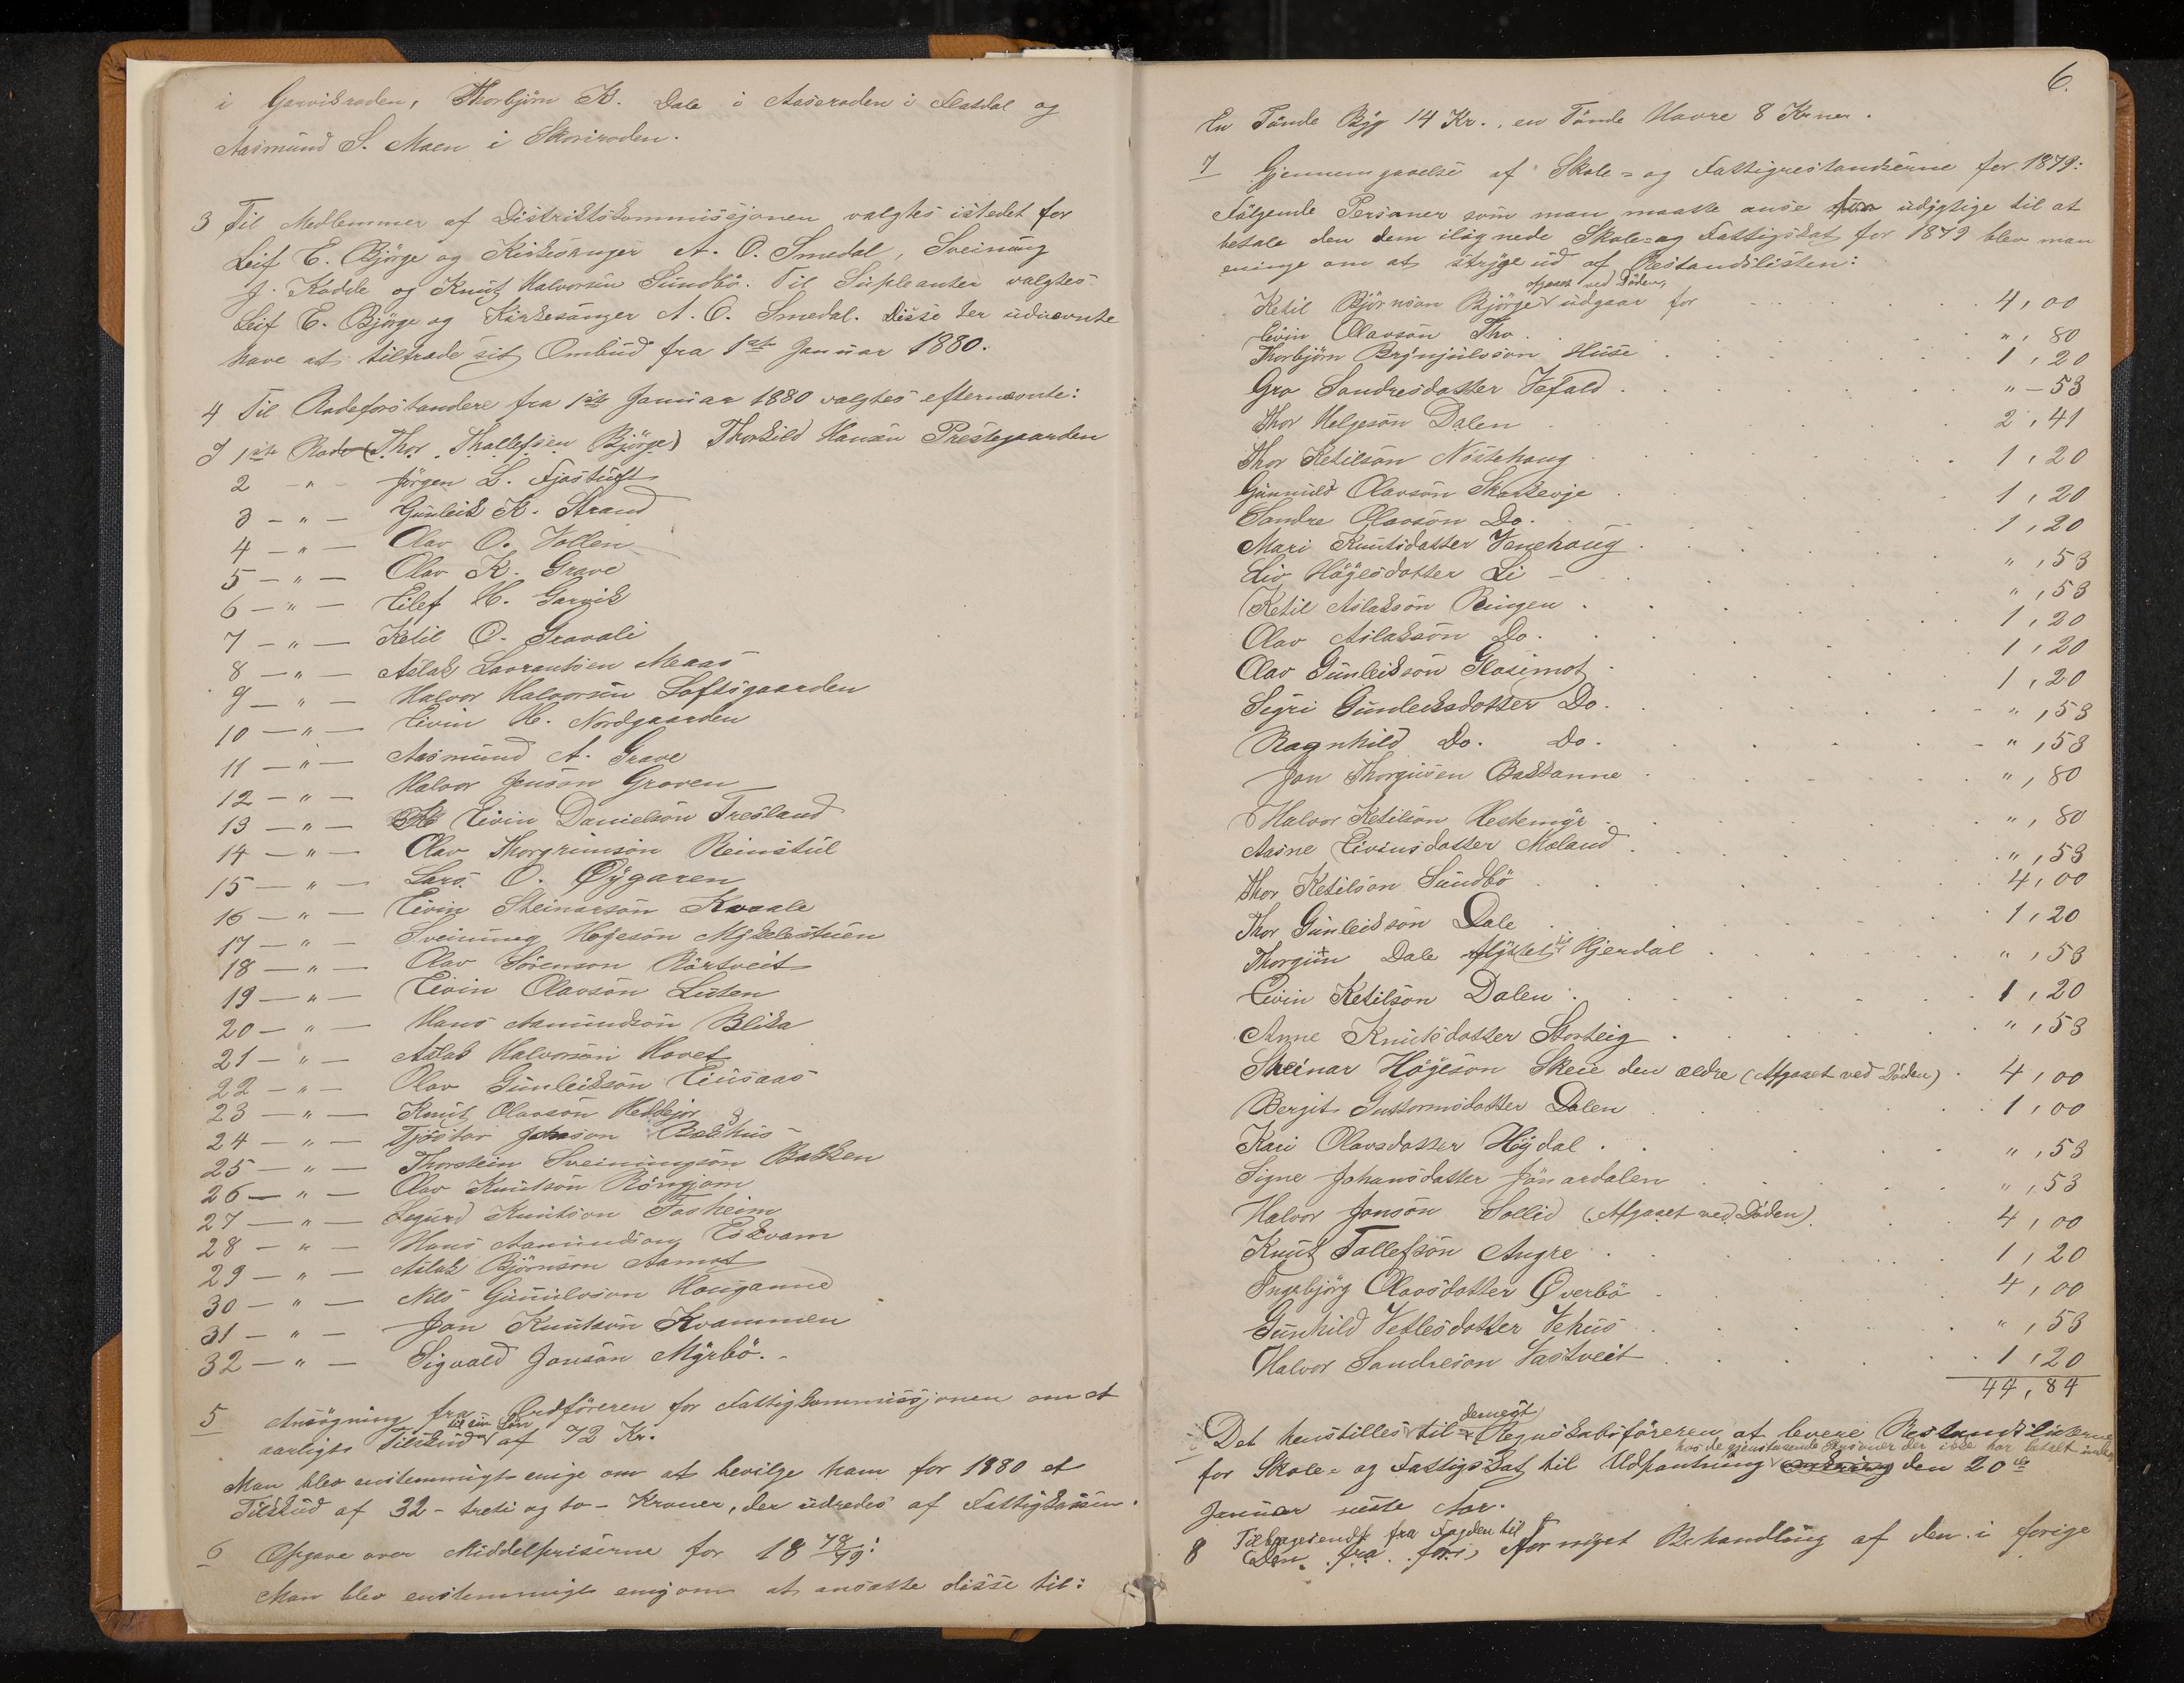 i Garviksroden, Thorbjörn K. Dale i Aaseroden i Flatdal og
Aasmund S. Moen i Skoriroden.
3 Til Medlemmer af Distriktskommissjonen valgtes istedet for
Leif E. Björge og Kirkesanger A. O. Smedal, Sveinung
J. Kodde og Knut Halvorsen Sundbö. Til Supleanter valgtes
Leif E. Björge og Kirkesanger A. O. Smedal. Disse her udnævnte
have at tiltræde sit Ombud fra 1ste Januar 1880.
4 Til Rodeforstandere fra 1ste Januar 1880 valgtes efternævnte:
I 1ste Rode (Thor Thallefsen Björge) Thorkild Hansen Prestegaarden
2 - " - Jörgen L. Fjostuft
3 - " - Gunleik K. Strand
4 - " - Olav O. Vollen
5 - " - Olav K. Grave
6 - " - Eilef H. Garvik
7 - " - Ketil O. Gravali
8 - " - Aslak Lavrantsen Meaas
9 - " - Halvor Halvorsen Loftsgaarden
10 - " - Eivin H. Nordgaarden
11 - " - Aasmund A. Grave
12 - " - Halvor Jonson Groven
13 - " - Eivin Danielson Tresland
14 - " - Olav Thorgrimson Reinstul
15 - " - Lars O. Øygaren
16 - " - Eivin Steinarson Kvaale
17 - " - Sveinung Högeson Mykelestuen
18 - " - Olav Sörenson Rörtveit
19 - " - Eivin Olavson Luten
20 - " - Hans Aamundson Blika
21 - " - Aslak Halvorson Hovet
22 - " - Olav Gunleikson Einsaas
23 - " - Knut Olavson Heddejor
24 - " - Tjöstov Johnson Bækhus
25 - " - Thorstein Sveinungson Bakken
26 - " - Olav Knutson Röngjom
27 - " - Segurd Knutson Taoheim
28 - " - Hans Aamundson Eskvam
29 - " - Aslak Björnson Aamot
30 - " - Nils Gunulvson Hauganne
31 - " - Jon Knutson Kvammen
32 - " - Sigvald Jonson Myrbö.
5 Ansögning fra Ordföreren for Fattigkommissjonen om et
til sin Sön
aarligt Tilskud af 72 Kr.
Man blev enstemmigt enige om at bevilge ham for 1880 et
Tilskud af 32 - treti og to - Kroner, der udredes af Fattigkassen.
6 Opgave over Middelpriserne for 18 78/79:
Man blev enstemmigt enig om at ansætte disse til:
6.
En Tönde Byg 14 Kr., en Tönde Havre 8 Kroner.
7 Gjennemgaaelse af Skole- og Fattigrestanserne for 1879:
Fölgende Personer som man maatte anse for udygtige til at
betale den dem ilignede Skole- og Fattigskat for 1879 blev man
eninge om at stryge ud af Restanselisten:
afgaaet ved Döden,
Ketil Björnson Björge udgaar for 4,00
Eivin Olavson Tho ",80
Thorbjörn Brynjulvson Huse 1,20
Gro Sondresdatter Vefald "-53
Thor Helgeson Dalen 2,41
Thor Ketilson Nöstehaug 1,20
Gunnuld Olavson Skarkevje 1,20
Sondre Olavson Do. 1,20
Mari Knutsdatter Venehaug ",53
Liv Högesdatter Li ",53
Ketil Aslakson Ringen 1,20
Olav Aslakson Do. 1,20
Olav Gunleikson Glosimot 1,20
Sigri Gunleiksdotter Do. ",53
Ragnhild Do. Do. ",53
Jon Thorgusen Bakkanne ",80
Halvor Ketilson Hestemyr ",80
Aasne Eivinsdatter Moland ",53
Thor Ketilson Sundbö 4,00
Thor Gunleikson Dale 1,20
Thorgun Dale flyttet til Hjerdal ",53
Eivin Ketilson Dalen 1,20
Anne Knutsdatter Storteig ",53
Steinar Högeson Skeie den ældre (Afgaaet ved Döden) 4,00
Bergit Guttormsdatter Dalen 1,00
Kari Olavsdatter Höydal ",53
Signe Johansdatter Jönardalen ",53
Halvor Jonson Sollid (Afgaaet ved Döden) 4,00
Knut Tallefson Angre 1,20
Ingebjörg Olavsdatter Øverbö 4,00
Gunhild Vetlesdatter Vehus ",53
Halvor Sondreson Vastveit 1,20
44,84
dernest
Det henstilles til Regnskabsföreren at levere Restanselisterne
hos de gjenstaaende Personer der ikke har betalt inden
for Skole- og Fattigskat til Udpantning den 20de
Januar neste Aar.
Tilbagesendt fra Fogden til
8 (Den fra for) fornyet Behandling af den i forige